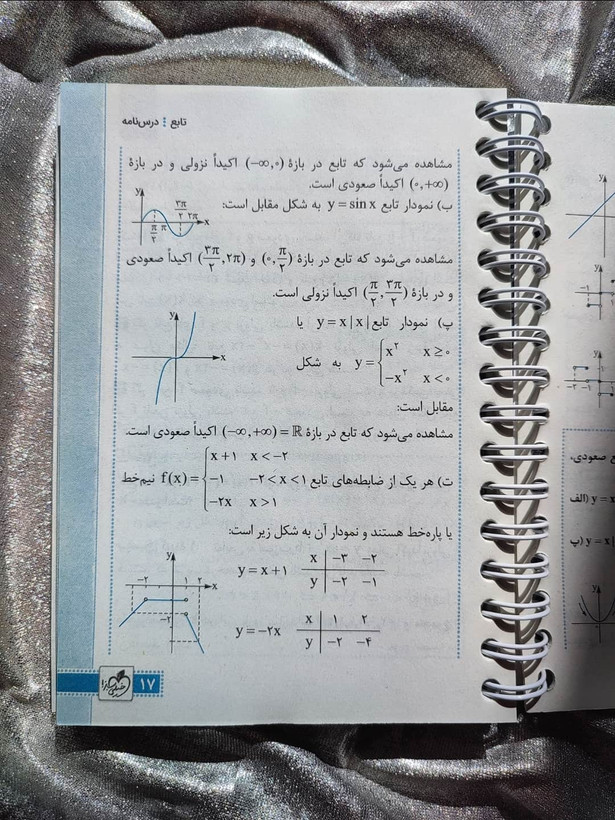 تابع ⋮ درس‌نامه
مشاهده می‌شود که تابع در بازهٔ (−∞,۰) اکیداً نزولی و در بازهٔ
(۰,+∞) اکیداً صعودی است.
ب) نمودار تابع y = sin x به شکل مقابل است:
y
۳π
۲
۲π
x
π
۲
π
مشاهده می‌شود که تابع در بازهٔ (۰,π/۲) و (۳π/۲,۲π) اکیداً صعودی
و در بازهٔ (π/۲,۳π/۲) اکیداً نزولی است.
پ) نمودار تابع y = x|x| یا
y = { x² x ≥ ۰
−x² x < ۰
به شکل
مقابل است:
y
x
مشاهده می‌شود که تابع در بازهٔ (−∞,+∞) = ℝ اکیداً صعودی است.
ت) هر یک از ضابطه‌های تابع f(x) = { x+۱ x<−۲
−۱ −۲<x<۱
−۲x x>۱
نیم‌خط
یا پاره‌خط هستند و نمودار آن به شکل زیر است:
y = x+۱
x −۳ −۲
y −۲ −۱
y = −۲x
x ۱ ۲
y −۲ −۴
y
−۲ ۱ ۲ x
−۲
خیلی سبز
۱۷
ع صعودی،
الف) y = x
پ) y = x|